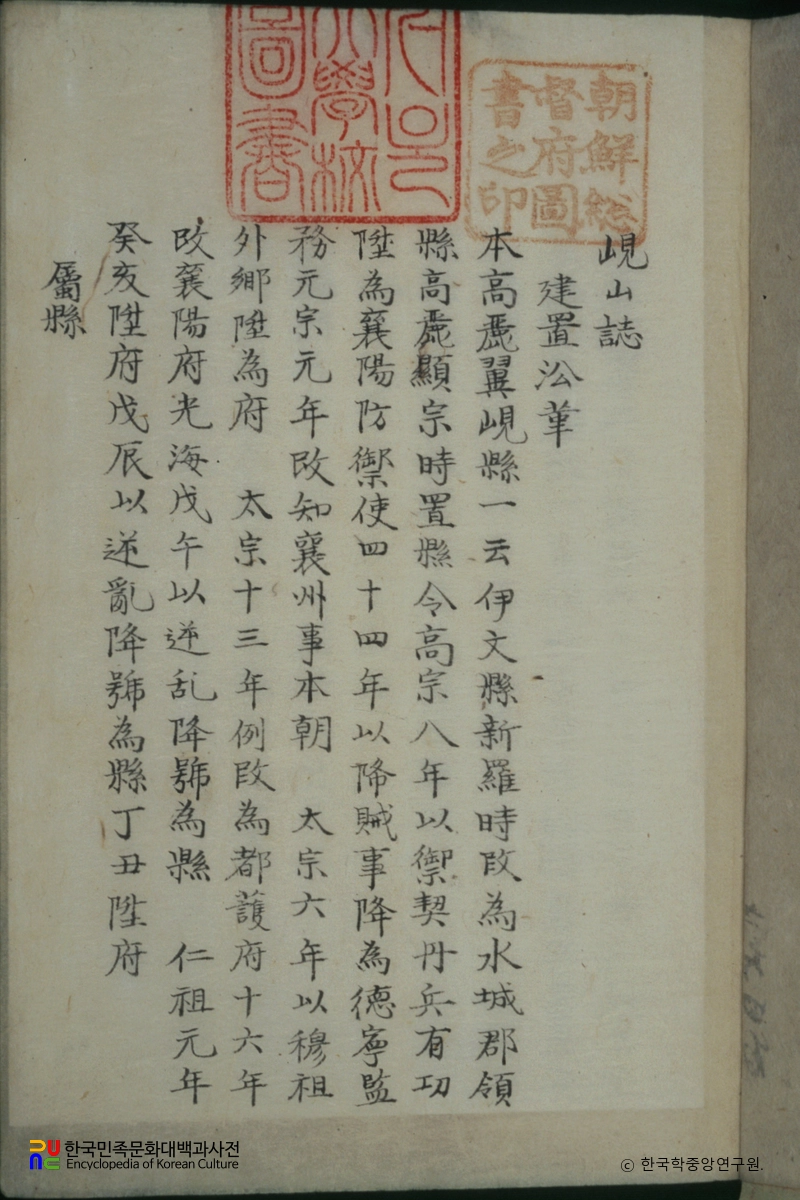 朝鮮総
督府圖
書之印
大學校
圖書
峴山誌
建置沿革
本高麗翼峴縣一云伊文縣新羅時改為水城郡領
縣高麗顯宗時置縣令高宗八年以禦契丹兵有功
陞為襄陽防禦使四十四年以降賊事降為德寧監
務元宗元年改知襄州事本朝 太宗六年以穆祖
外鄉陞為府 太宗十三年例改為都護府十六年
改襄陽府光海戊午以逆乱降號為縣 仁祖元年
癸亥陞府戊辰以逆亂降號為縣丁丑陞府
屬縣
한국민족문화대백과사전
Encyclopedia of Korean Culture
© 한국학중앙연구원.